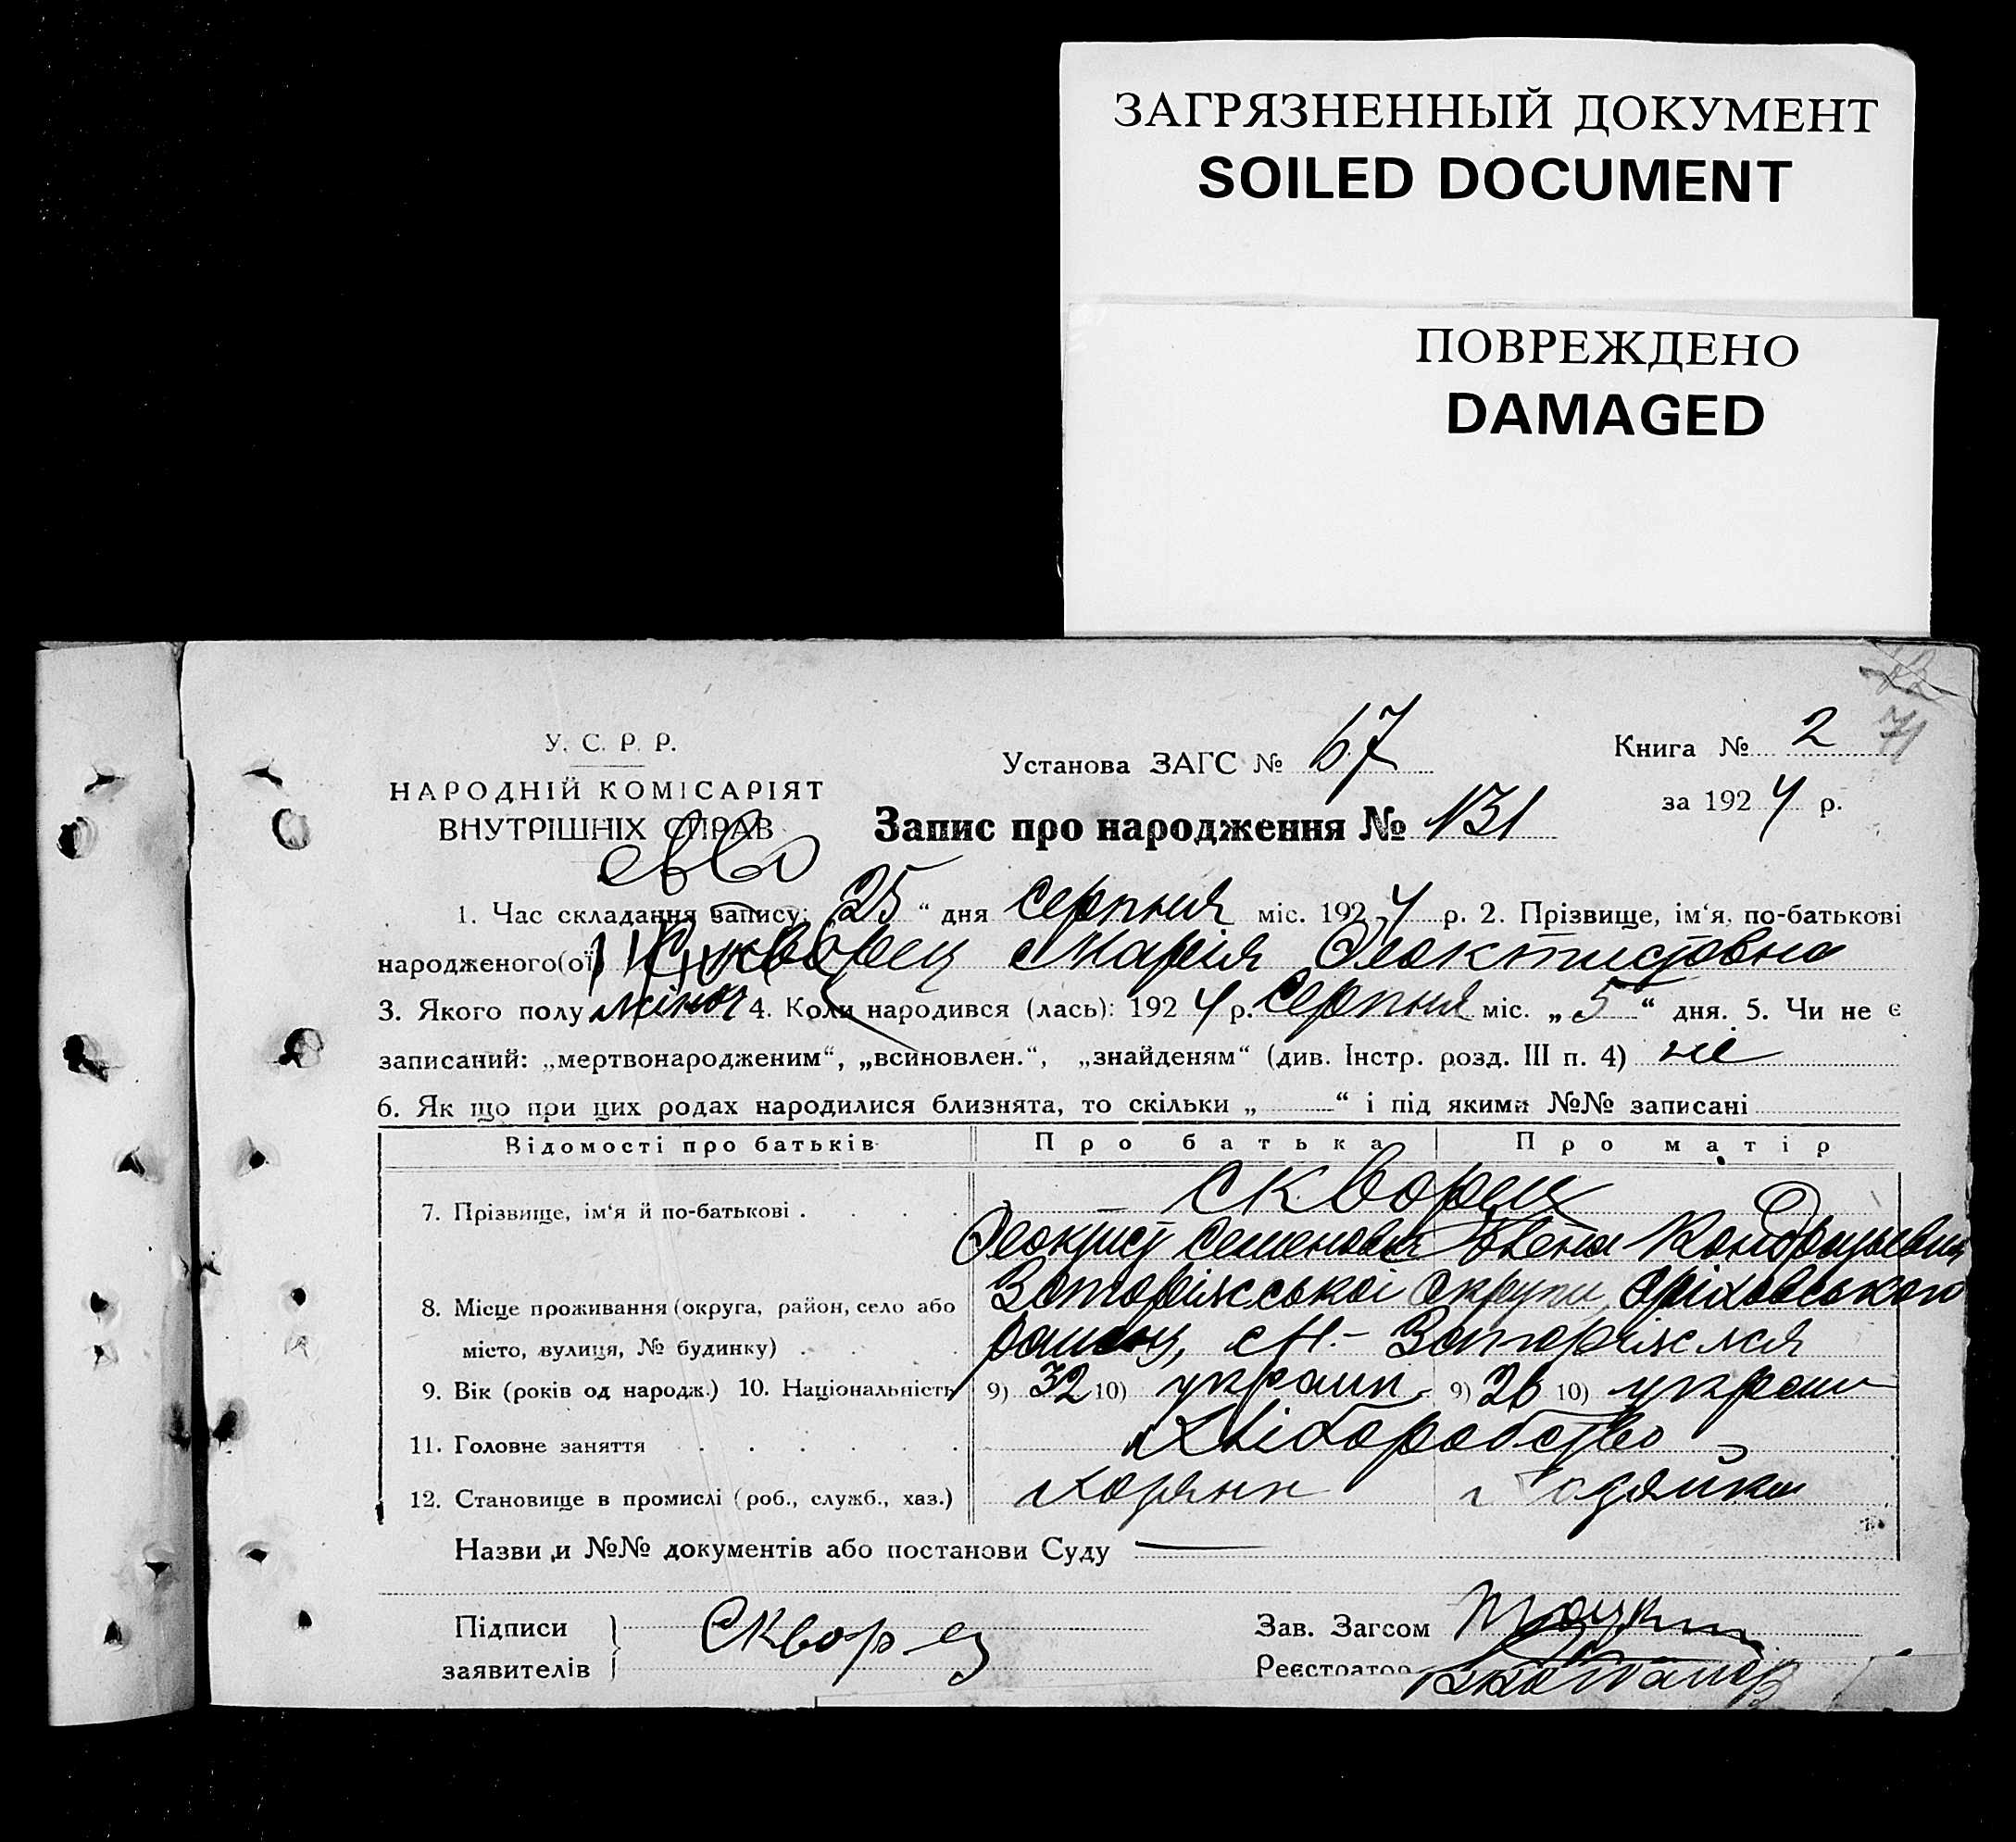 ЗАГРЯЗНЕННЫЙ ДОКУМЕНТ
SOILED DOCUMENT
ПОВРЕЖДЕНО
DAMAGED
71
У. С. Р. Р.
НАРОДНІЙ КОМІСАРІЯТ
ВНУТРІШНІХ СПРАВ
Установа ЗАГС № 67
Книга № 2
за 1924 р.
Запис про народження № 131
1. Час складання запису: 25 “ дня Серпня міс. 1924 р. 2. Прізвище, ім‘я, по-батькові
народженого(ої) Скворец Марія Феоктистовна
3. Якого полу жіноч 4. Коли народився (лась): 1924 р. Серпня міс. „ 5 “ дня. 5. Чи не є
записаний: „мертвонародженим“, „всиновлен.“, „знайденям“ (див. Інстр. розд. III п. 4) не
6. Як що при цих родах народилися близнята, то скільки „ “ і під якими №№ записані
Відомості про батьків Про батька Про матір
7. Прізвище, ім‘я й по-батькові . . . . . Скворец
Семенович Кондратьевна
8. Місце проживання (округа, район, село або Запоріжської округи, Оріховського
місто, вулиця, № будинку) . . . району, М.- Запоріжжя
9. Вік (років од народж.) 10. Національність 9) 32 10) україн. 9) 26 10) україн
11. Головне заняття . . . . . . Хліборобство
12. Становище в промислі (роб., служб., хаз.) Хозяин Хозяйка
Назви и №№ документів або постанови Суду —
Підписи
заявителів
Скворец
Зав. Загсом
Реєстратор